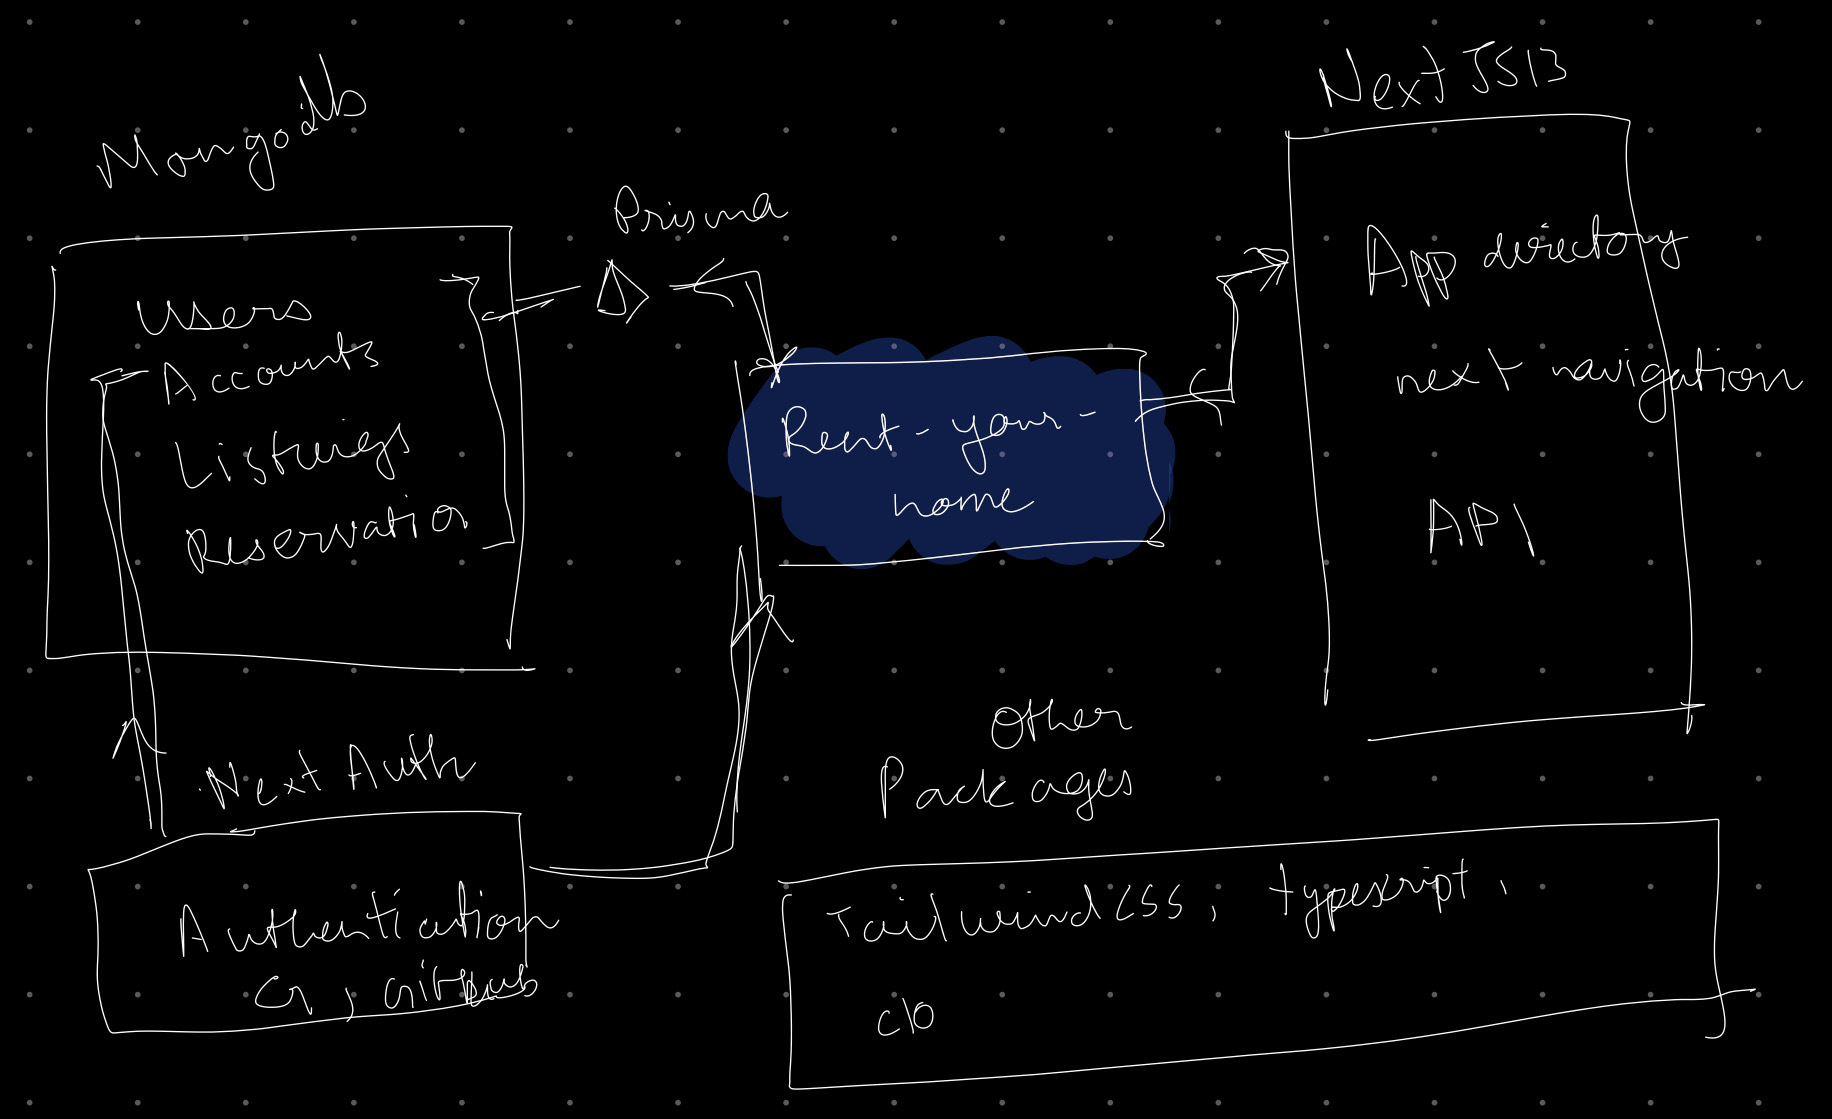 Mongodb
Users
Accounts
Listings
Reservation
Prisma
Rent-your-
home
Next JS13
App directory
next navigation
API
Next Auth
Authentication
G, GitHub
Other
Packages
Tailwind CSS, typescript,